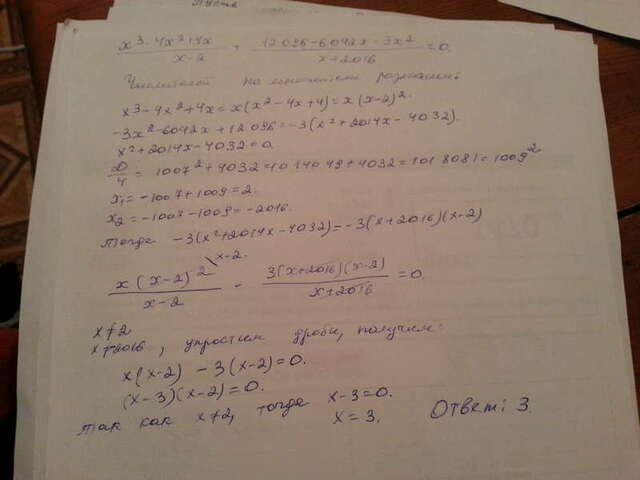 x³-4x²+4x / x-2 + 12096-6042x-3x² / x+2016 = 0.
Числители на множители разложим:
x³-4x²+4x=x(x²-4x+4)=x(x-2)².
-3x²-6042x+12096=-3(x²+2014x-4032).
x²+2014x-4032=0.
D/4 = 1007²+4032=1014049+4032=1018081=1009²
x₁=-1007+1009=2.
x₂=-1007-1009=-2016.
тогда -3(x²+2014x-4032)=-3(x+2016)(x-2)
x(x-2)² x-2. / x-2 - 3(x+2016)(x-2) / x+2016 = 0.
x≠2
x≠-2016, упростим дроби, получим:
x(x-2) -3(x-2)=0.
(x-3)(x-2)=0.
так как x≠2, тогда x-3=0.
x=3. Ответ: 3.